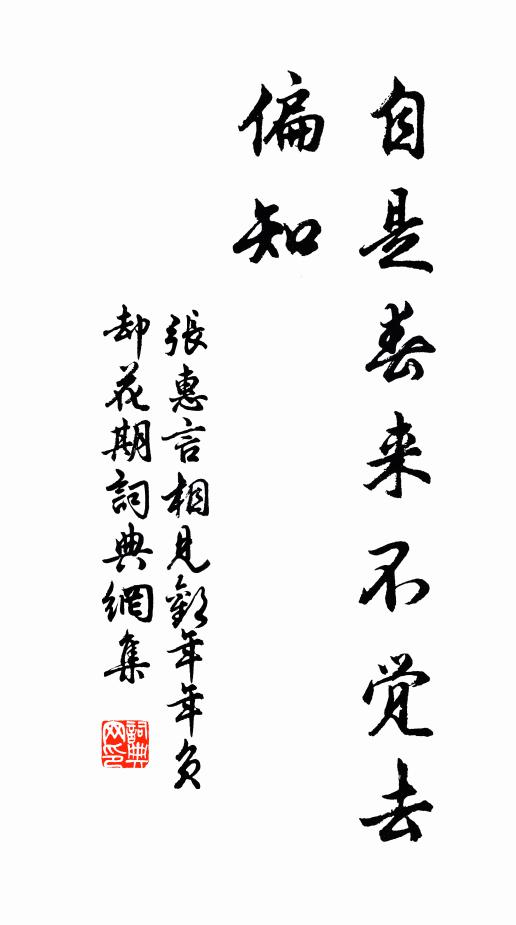 自是春来不觉去
偏知
張惠言相見歡年年負
却花期詞典網集
詞典
网印